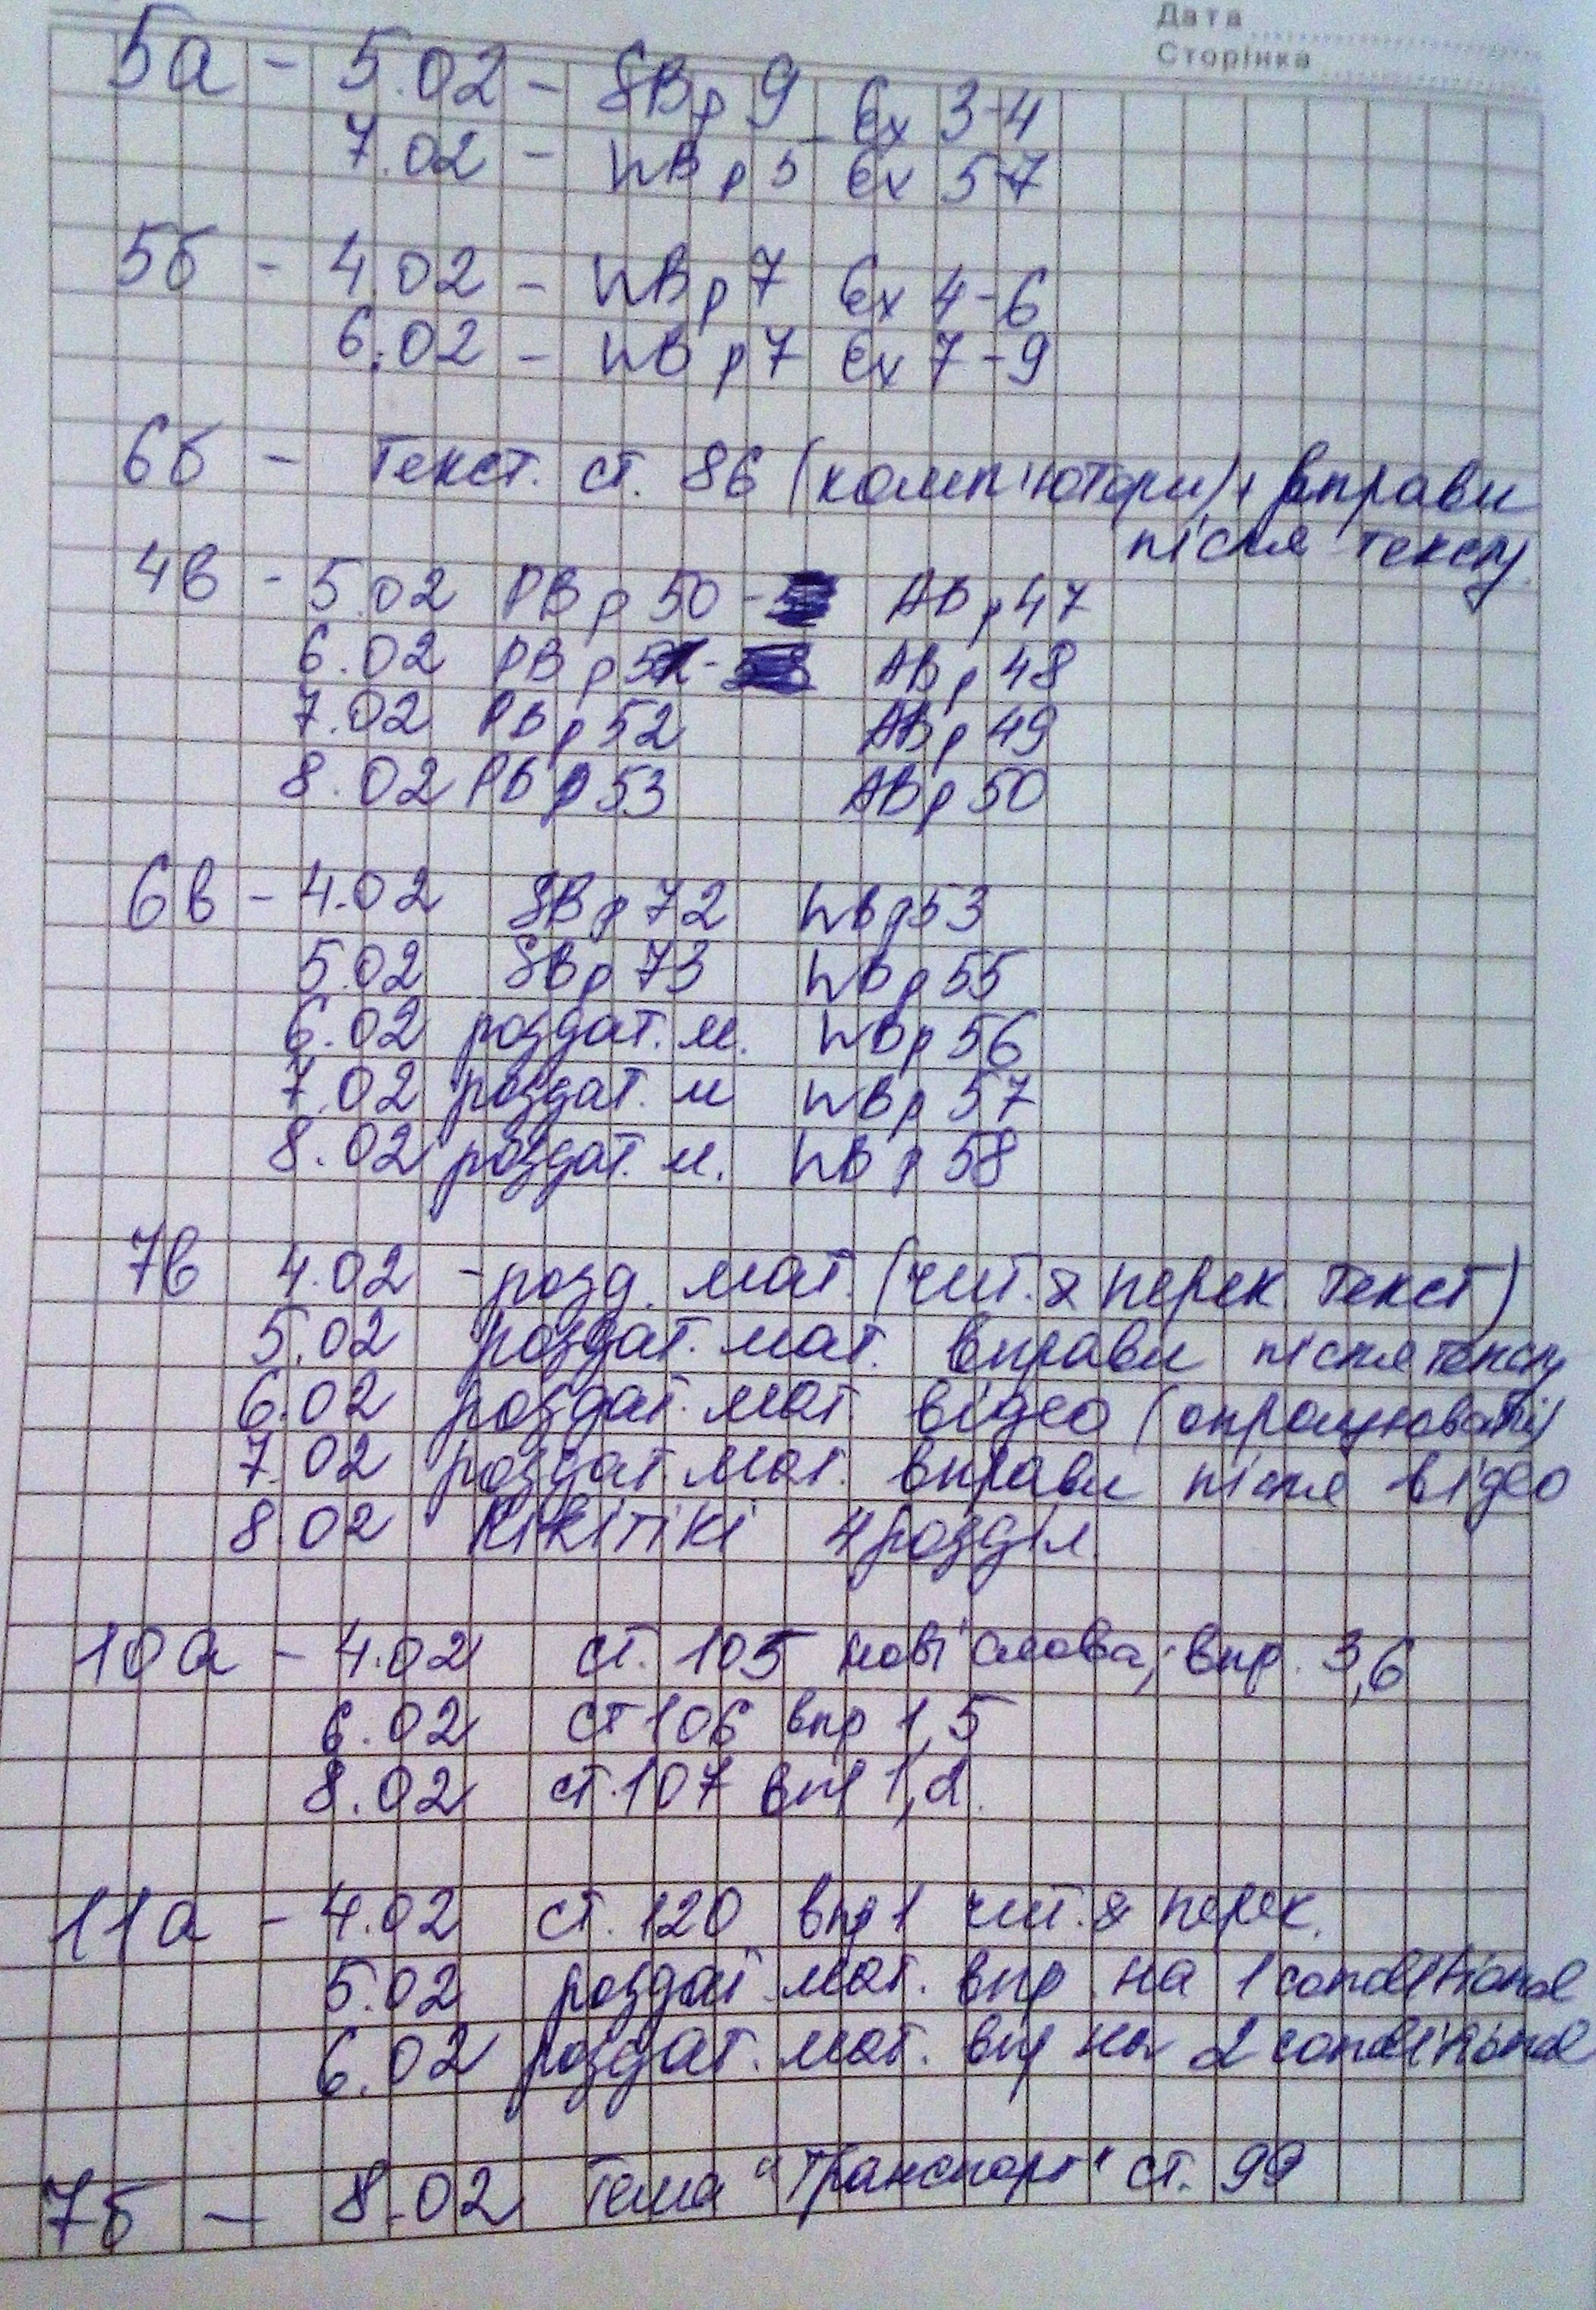 Дата
Сторінка
5а - 5.02 - SB p 9 - Ex 3-4
7.02 - WB p 5 Ex 5-7
5б - 4.02 - WB p 7 Ex 4-6
6.02 - WB p 7 Ex 7-9
6б - Текст. ст. 86 (комп'ютери) + вправи
після тексту.
4в - 5.02 PB p 50 - AB p 47
6.02 PB p 51 - AB p 48
7.02 PB p 52 AB p 49
8.02 PB p 53 AB p 50
6в - 4.02 SB p 72 WB p 53
5.02 SB p 73 WB p 55
6.02 роздат. м. WB p 56
7.02 роздат. м WB p 57
8.02 роздат. м. WB p 58
7в 4.02 - розд. мат. (чит. & перек текст)
5.02 роздат. мат. вправи після тексту
6.02 роздат. мат відео (опрацювати)
7.02 роздат. мат. вправи після відео
8.02 Рікітікі 4 розділ.
10а - 4.02 ст. 105 нові слова, впр. 3,6
6.02 ст 106 впр 1,5
8.02 ст. 107 впр 1,2.
11а - 4.02 ст. 120 впр 1 чит. & перек.
5.02 роздат. мат. впр на 1 conditional
6.02 роздат. мат. впр на 2 conditional
7б - 8.02 Тема "Транспорт" ст. 99